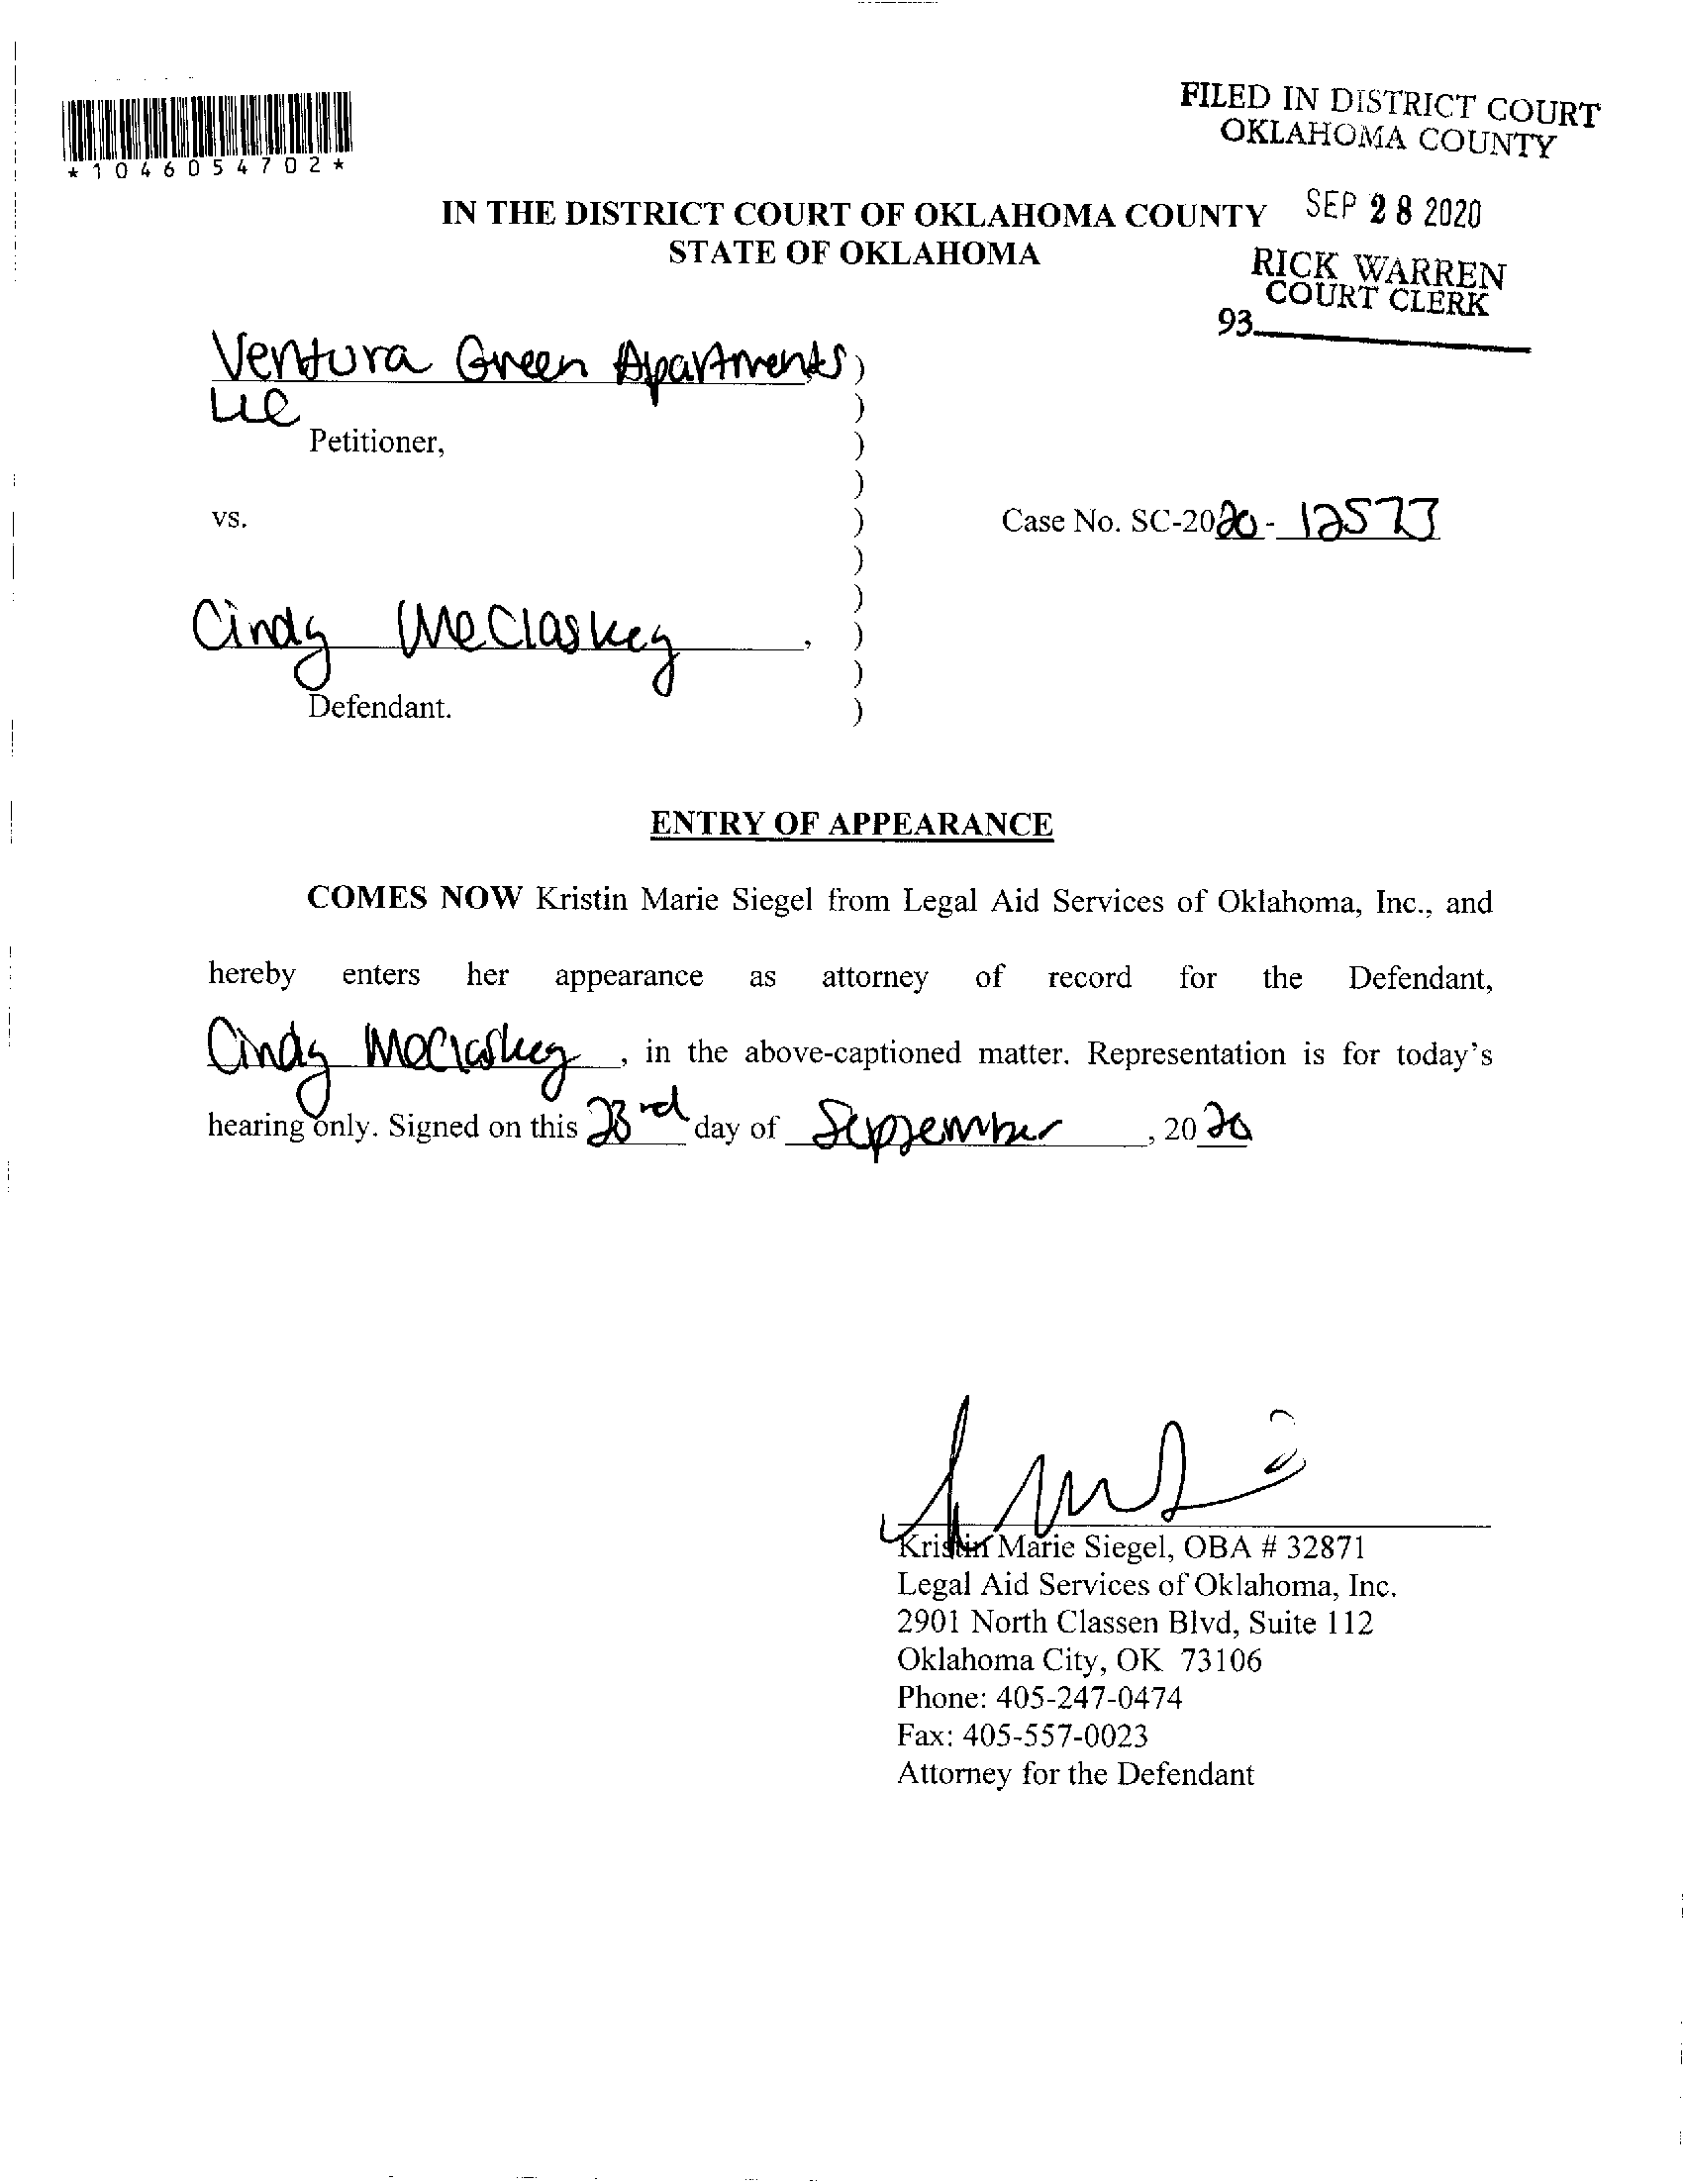 *1046054702*
FILED IN DISTRICT COURT
OKLAHOMA COUNTY
SEP 28 2020
RICK WARREN
COURT CLERK
93
IN THE DISTRICT COURT OF OKLAHOMA COUNTY
STATE OF OKLAHOMA
Ventura Green Apartments )
LLC )
Petitioner, )
)
vs. ) Case No. SC-2020-12573
)
)
Cindy McClaskey, )
)
Defendant. )
ENTRY OF APPEARANCE
COMES NOW Kristin Marie Siegel from Legal Aid Services of Oklahoma, Inc., and
hereby enters her appearance as attorney of record for the Defendant,
Cindy McClaskey, in the above-captioned matter. Representation is for today's
hearing only. Signed on this 23rd day of September, 2020
Kristin Marie Siegel, OBA # 32871
Legal Aid Services of Oklahoma, Inc.
2901 North Classen Blvd, Suite 112
Oklahoma City, OK 73106
Phone: 405-247-0474
Fax: 405-557-0023
Attorney for the Defendant